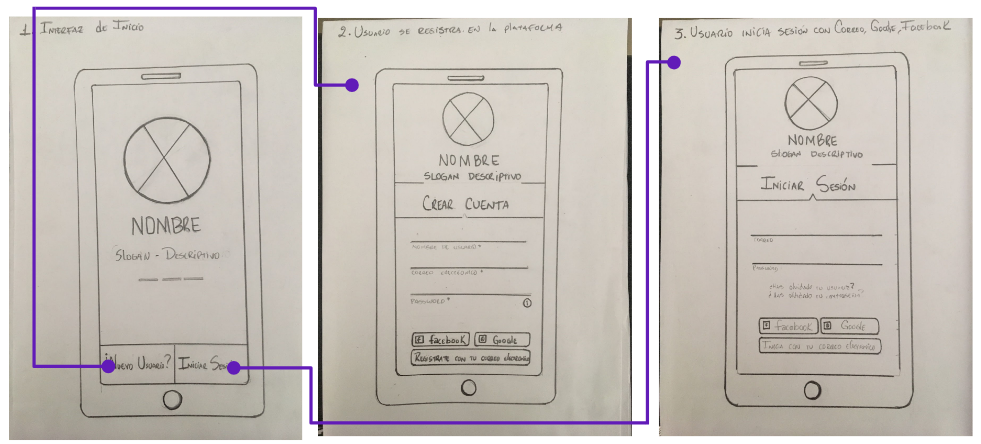 1. Interfaz de Inicio
NOMBRE
Slogan - Descriptivo
¿Nuevo Usuario?
Iniciar Ses
2. Usuario se registra en la plataforma
NOMBRE
Slogan Descriptivo
Crear Cuenta
Nombre de usuario*
Correo electrónico*
Password*
Facebook
Google
Registrate con tu correo electronico
3. Usuario inicia sesión con Correo, Google, Facebook
NOMBRE
Slogan Descriptivo
Iniciar Sesión
Password
Has olvidado tu usuario?
Facebook
Google
Inicia con tu correo electronico